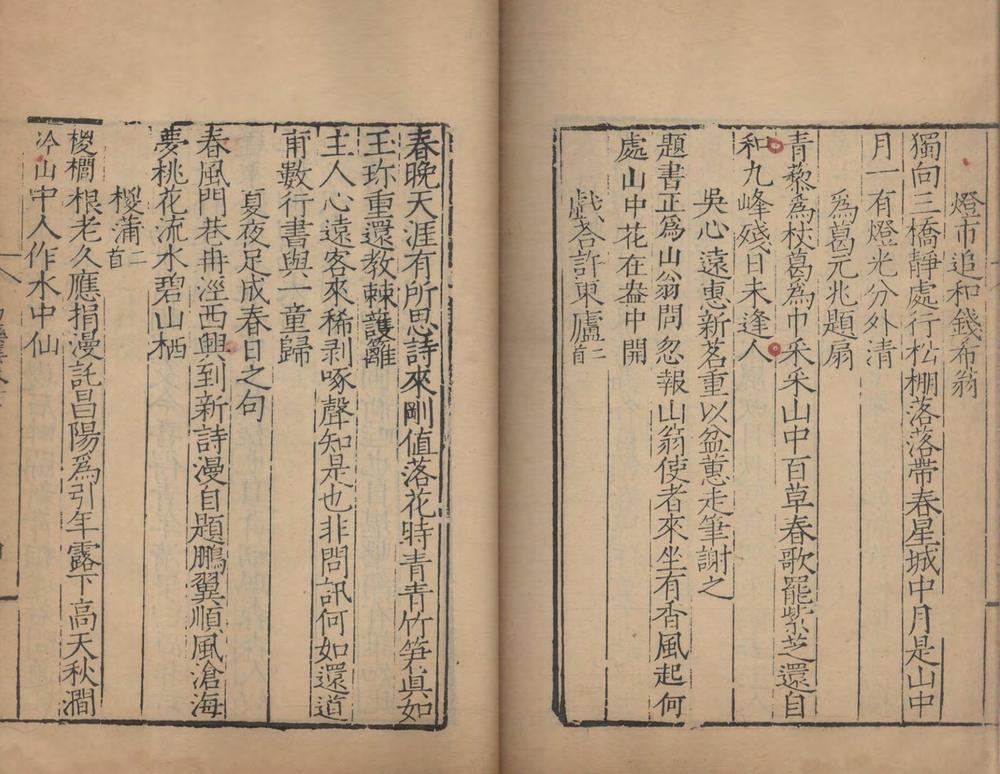 燈市追和錢布翁
獨向三橋靜處行松棚落落帶春星城中月是山中
月一有燈光分外清
為葛元兆題扇
青藜為杖葛為巾采采山中百草春歌罷紫芝還自
和九峰殘日未逢人
吳心遠惠新茗重以盆蕙走筆謝之
題書正為山翁問忽報山翁使者來坐有香風起何
處山中花在盎中開
戲荅許東廬二首
春晚天涯有所思詩來剛值落花時青青竹筍真如
玉珎重還教棘護籬
主人心遠客來稀剥啄聲知是也非問訊何如還道
甫數行書與一童歸
夏夜足成春日之句
春風門巷冉涇西興到新詩漫自題鵬翼順風滄海
夢桃花流水碧山栖
椶蒲二首
椶櫚根老久應捐漫託昌陽為引年露下高天秋澗
冷山中人作水中仙